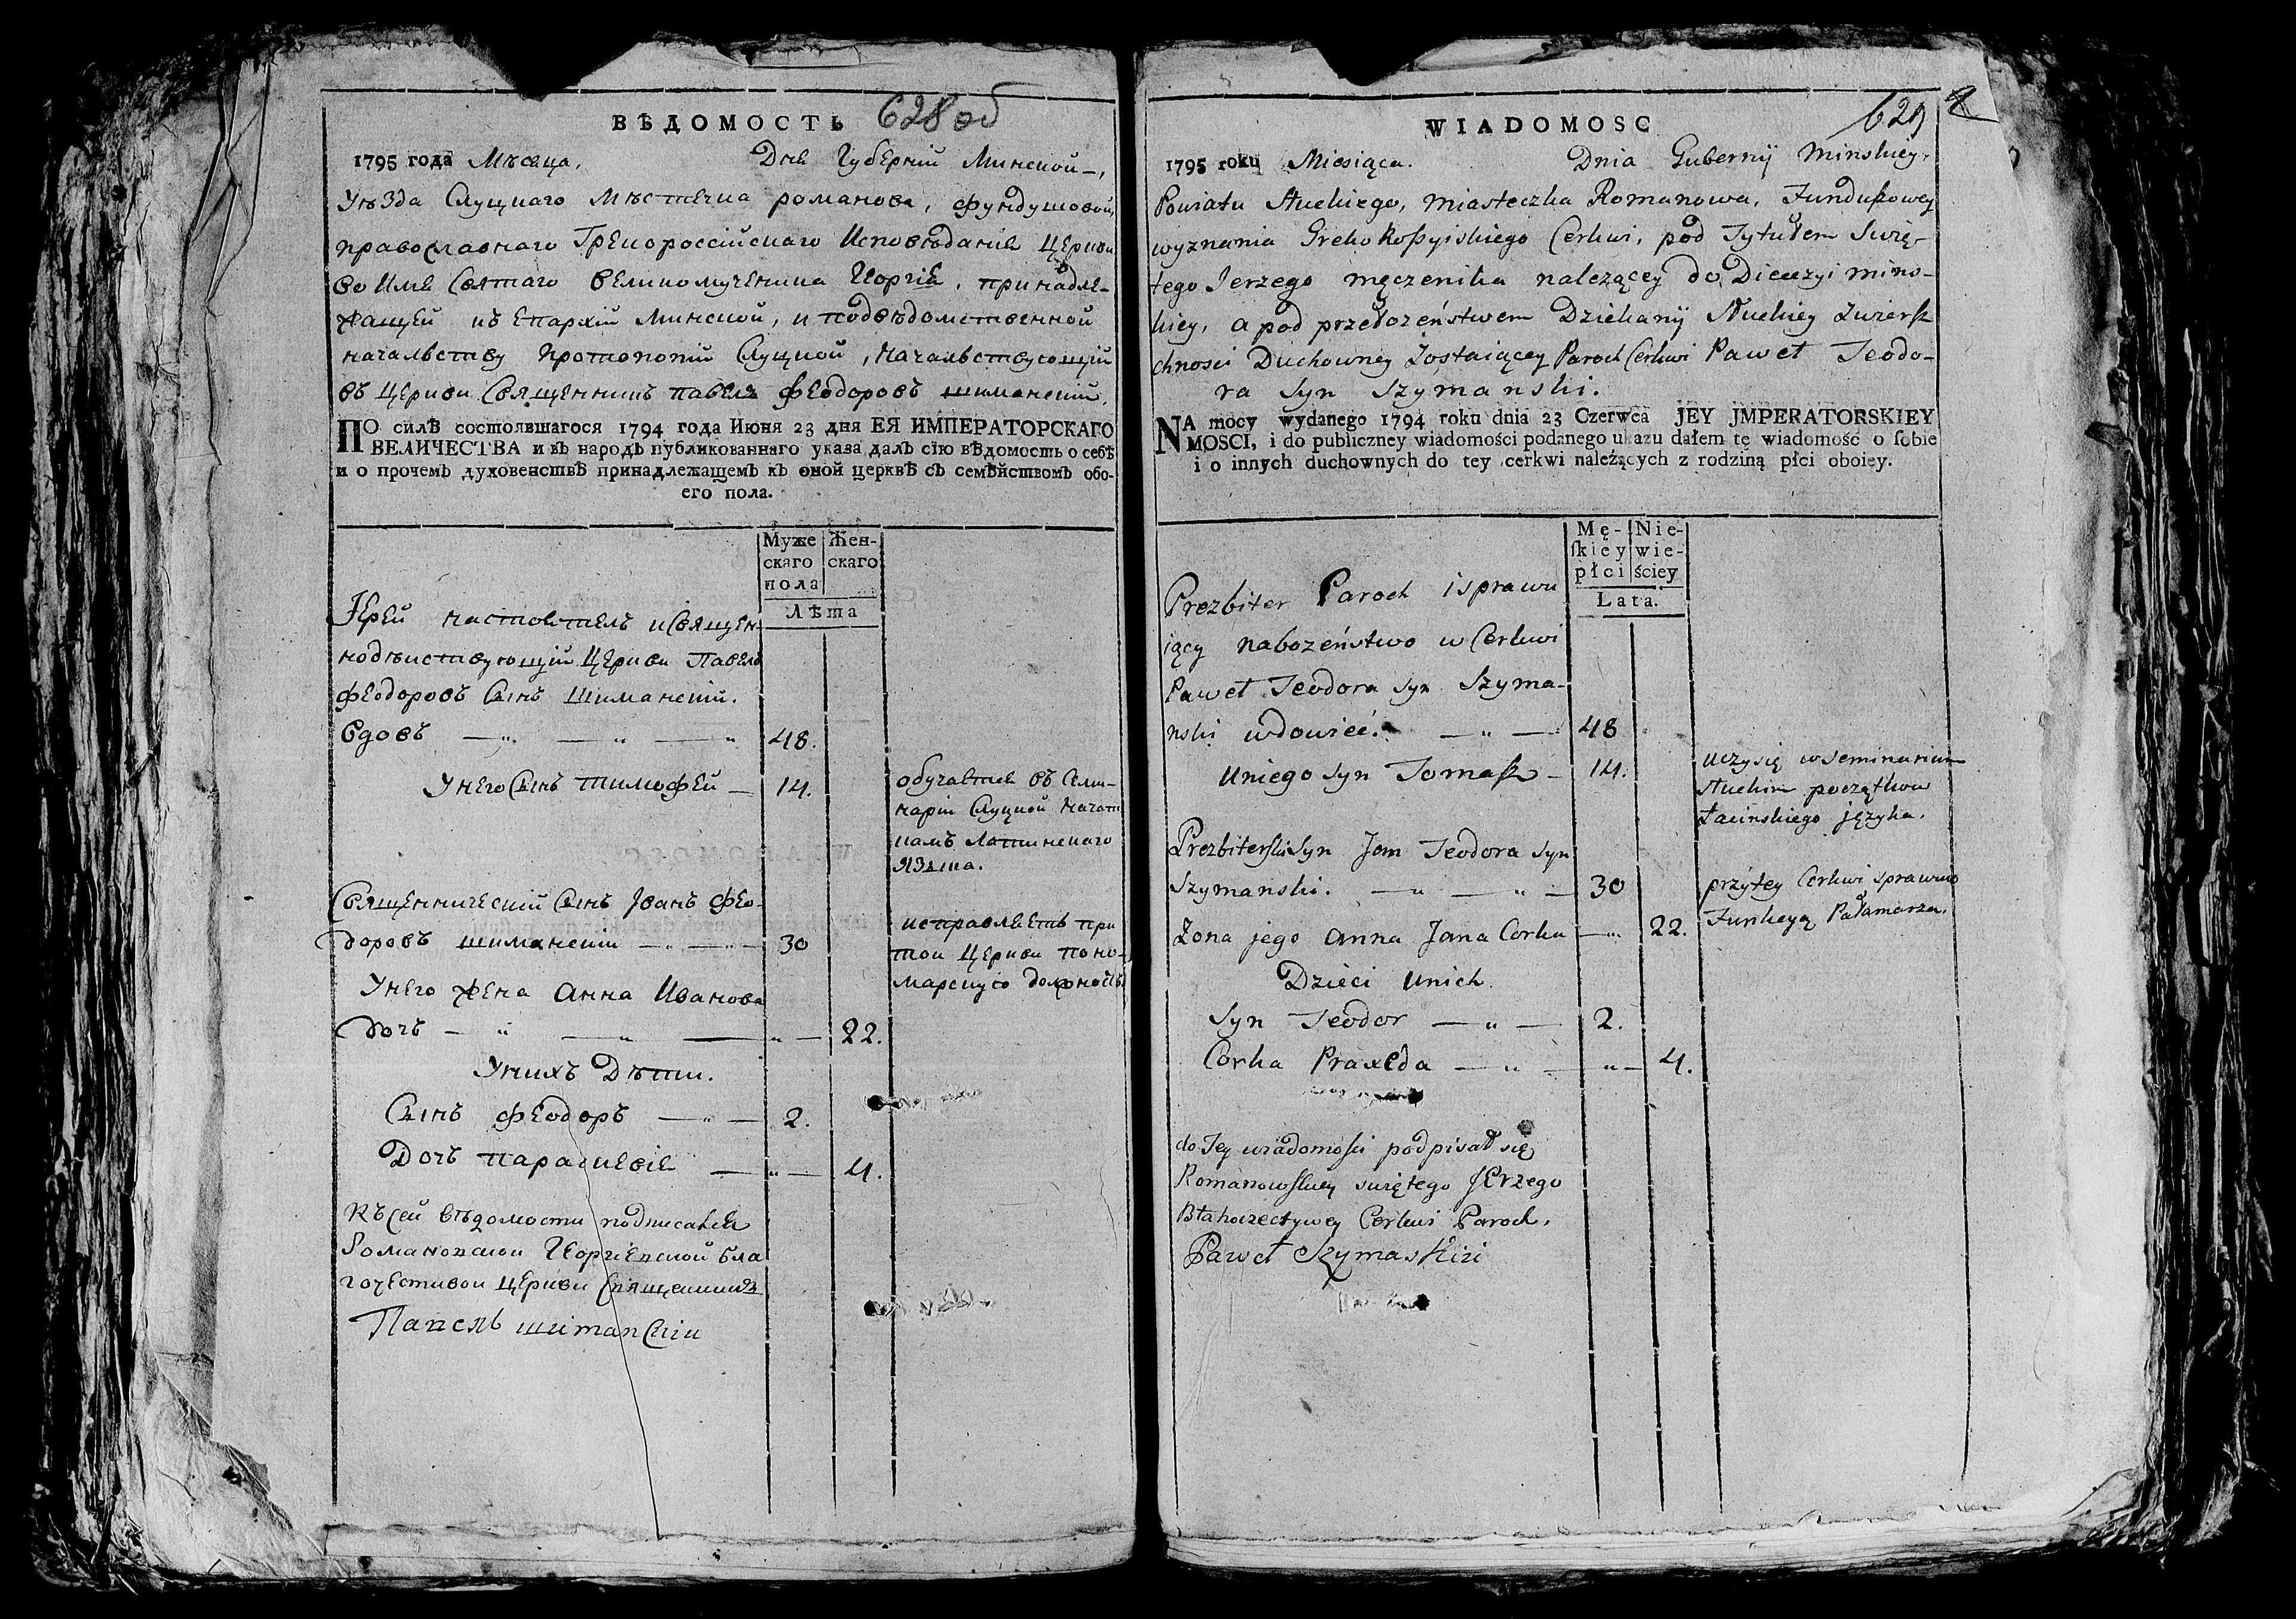 ВѢДОМОСТЬ 628 об
1795 года Мѣсяца, Дня Губерніи Минской,
Уѣзда Слуцкаго Мѣстечка романова, фундушовой
православнаго Грекороссійскаго Исповѣданія Церкви
во Имя Святаго великомученика Георгія, принадле-
жащей къ Епархіи Минской, и подвѣдомственной
начальству протопопіи Слуцкой, начальствующій
въ Церкви Священникъ павелъ Феодоровъ шиманскій,
ПО силѣ состоявшагося 1794 года Июня 23 дня ЕЯ ИМПЕРАТОРСКАГО
ВЕЛИЧЕСТВА и въ народъ публикованнаго указа далъ сїю вѣдомость о себѣ
и о прочемъ духовенствѣ принадлежащемъ къ оной церквѣ съ семѣйствомъ обо-
его пола.
Муже
скаго
пола
Жен-
скаго
Лѣта
Іерей настоятель и Священ-
нодѣиствующій Церкви Павелъ
Феодоровъ Сынъ Шиманскій.
Вдовъ — „ — „ — „ 48.
У него Сынъ тимофей — 14.
обучается въ Семи-
наріи Слуцкой начат-
камъ Латинскаго
языка.
Священническій Сынъ Іванъ Фео-
доровъ шиманскіи — „ — 30
исправляетъ при
тои Церкви поно-
марскую должность
У него жена анна Иванова
дочь — „ — „ — „ — 22.
У нихъ Дѣти.
Сынъ феодоръ — „ — 2.
Дочъ параскевія — „ — 4.
Къ сей вѣдомости подписался
Романовскои Георгіевской бла
гочестивои церкви священникъ
Павелъ шиманскіи
WIADOMOSC 629
1795 roku Miesiąca. Dnia Gubernij Minskiey,
Powiatu Słuckiego, miasteczka Romanowa, Funduszowey
wyznania Greko Roſsyiskiego Cerkwi, pod Tytułem Swię-
tego Jerzego męczenika nalezącey do Diecezyi mins-
kiey, a pod przełozeństwem Dziekanij Słuckiey Zwierz
chnosci Duchowney Zostaiącey Paroch Cerkwi Paweł Teodo-
ra Syn Szymanski.
NA mocy wydanego 1794 roku dnia 23 Czerwca JEY JMPERATORSKIEY
MOSCI, i do publiczney wiadomości podanego ukazu dałem tę wiadomość o ſobie
i o innych duchownych do tey cerkwi należących z rodziną płci oboiey.
Mę-
ſkiey
płci
Nie-
wie-
ściey
Lata.
Prezbiter Paroch i sprawu
iący nabozeństwo w Cerkwi
Paweł Teodora syn Szyma-
nski wdowiec. — „ — 48
u niego syn Tomasz — 14.
uczy się w seminarium
słuckim początkow
Łacinskiego języka.
Prezbiterski Syn Jan Teodora syn
Szymanski. — „ — „ — 30
przytey Cerkwi sprawuie
Funkcyą Pałamarza.
Zona jego anna Jana Corka — „ 22.
Dzieci u nich.
Syn Teodor — „ — 2.
Corka Praxeda — „ — „ — 4.
do Tey wiadomosci podpisał się
Romanowskiey swiętego Jerzego
Błahoczestywey Cerkwi Paroch.
Paweł Szymaskiri